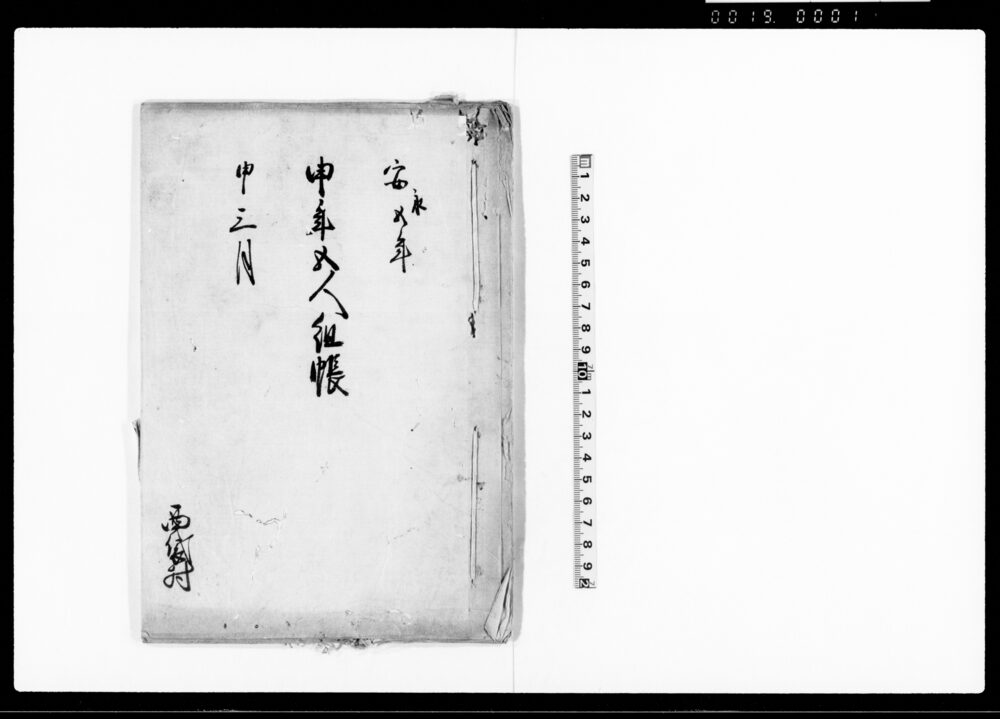 0019. 0001
安永五年
申年五人組帳
申三月
西
村
1 2 3 4 5 6 7 8 9 10 1 2 3 4 5 6 7 8 9 2